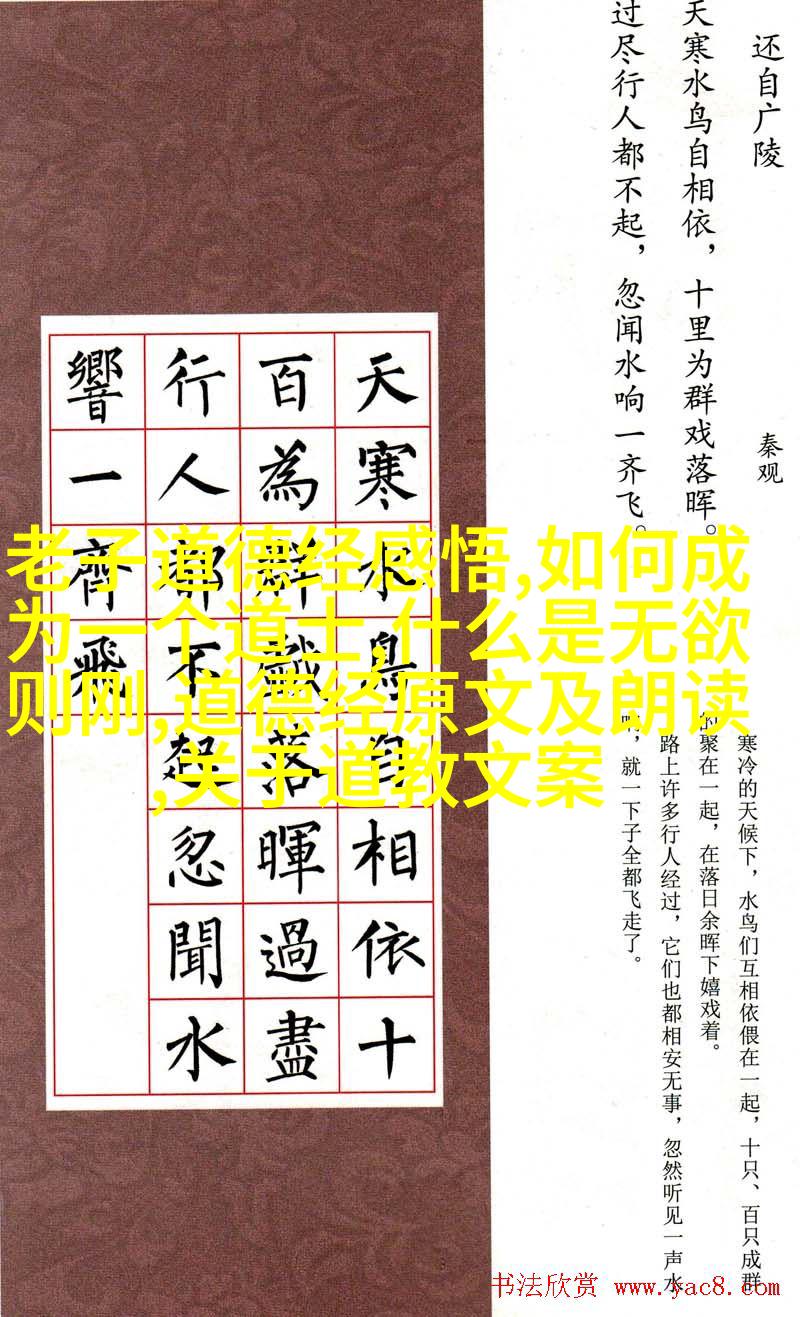 还自广陵
秦观
天寒水鸟自相依，十里为群戏落晖。
过尽行人都不起，忽闻水响一齐飞。
天寒水鳥自相依十
百為群戲落暉過盡
行人都不起忽聞水
響一齊飛
老子道德经感悟,如何成
为一个道士,什么是无欲
则刚,道德经原文及朗读
,关于道教文案
寒冷的天候下，水鸟们互相依偎在一起，十只、百只成群
的聚在一起，在落日余晖下嬉戏着。
路上许多行人经过，它们也都相安无事，忽然听见一声水
响，就一下子全都飞走了。
书法欣赏 www.yac8.com